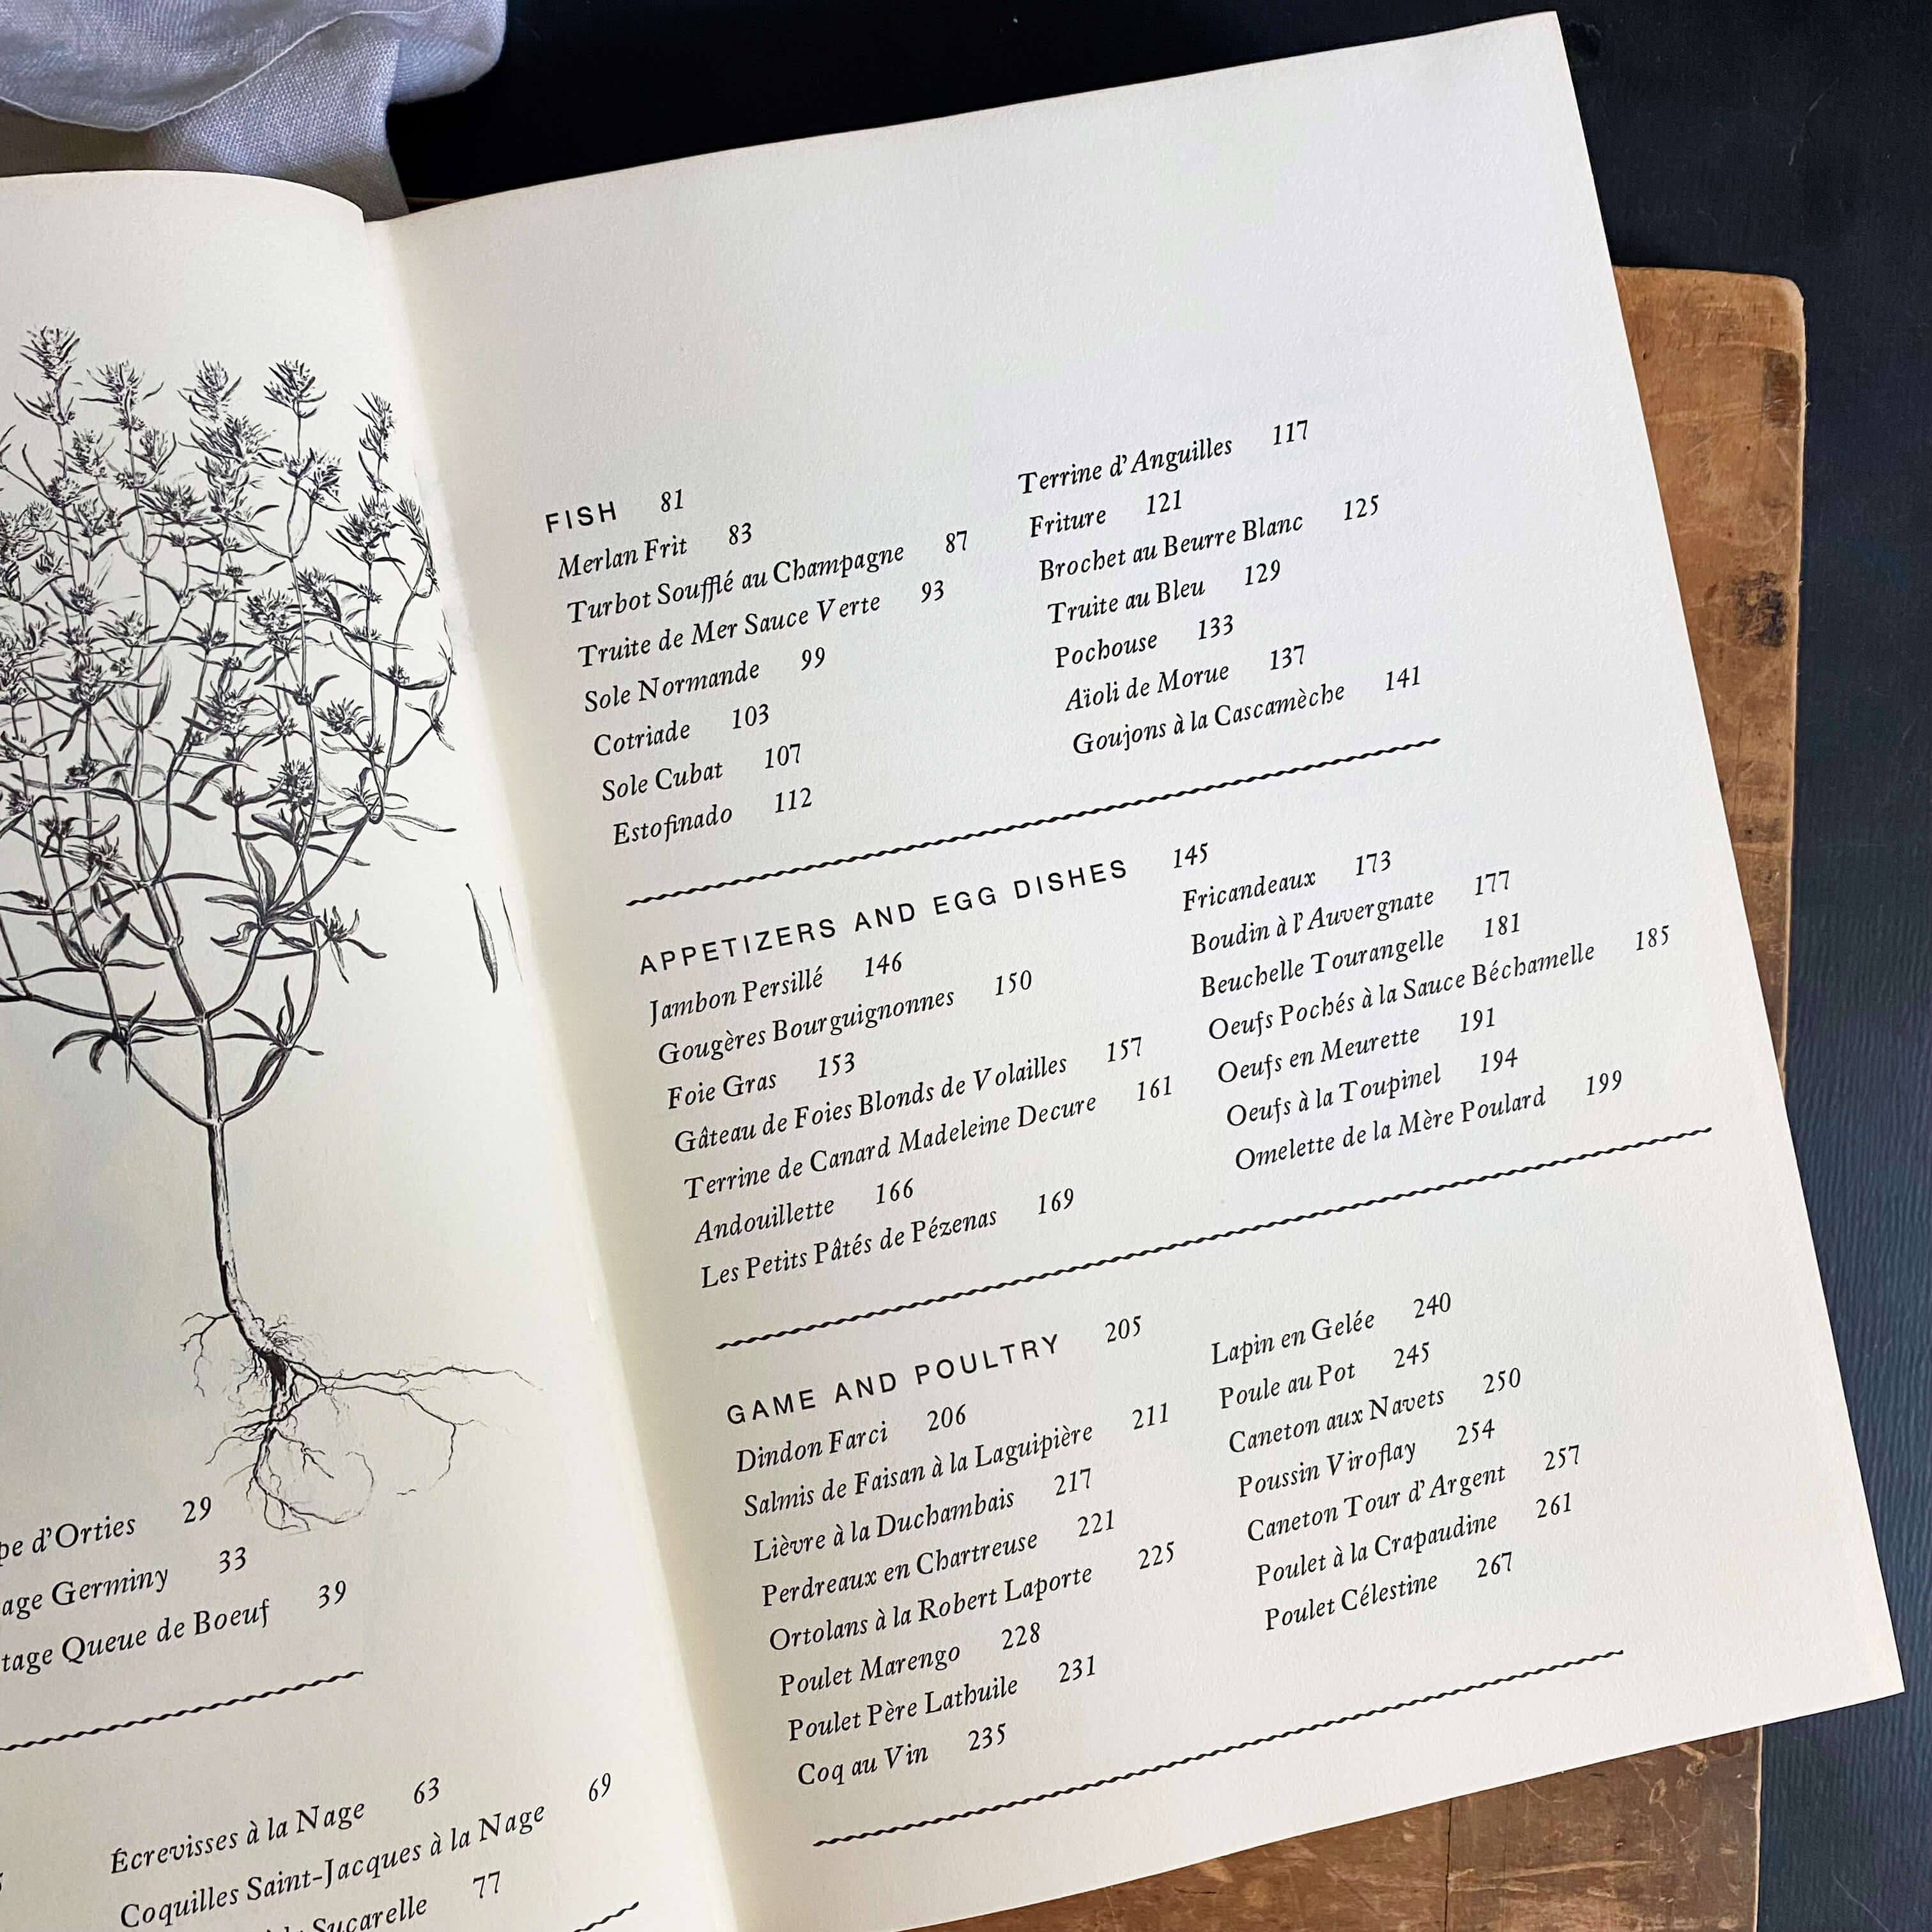 d'Orties 29
Germiny 33
Queue de Boeuf 39
Écrevisses à la Nage 63
Coquilles Saint-Jacques à la Nage 69
Sucarelle 77
FISH 81
Merlan Frit 83
Turbot Soufflé au Champagne 87
Truite de Mer Sauce Verte 93
Sole Normande 99
Cotriade 103
Sole Cubat 107
Estofinado 112
Terrine d'Anguilles 117
Friture 121
Brochet au Beurre Blanc 125
Truite au Bleu 129
Pochouse 133
Aïoli de Morue 137
Goujons à la Cascamèche 141
APPETIZERS AND EGG DISHES 145
Jambon Persillé 146
Gougères Bourguignonnes 150
Foie Gras 153
Gâteau de Foies Blonds de Volailles 157
Terrine de Canard Madeleine Decure 161
Andouillette 166
Les Petits Pâtés de Pézenas 169
Fricandeaux 173
Boudin à l'Auvergnate 177
Beuchelle Tourangelle 181
Oeufs Pochés à la Sauce Béchamelle 185
Oeufs en Meurette 191
Oeufs à la Toupinel 194
Omelette de la Mère Poulard 199
GAME AND POULTRY 205
Dindon Farci 206
Salmis de Faisan à la Laguipière 211
Lièvre à la Duchambais 217
Perdreaux en Chartreuse 221
Ortolans à la Robert Laporte 225
Poulet Marengo 228
Poulet Père Lathuile 231
Coq au Vin 235
Lapin en Gelée 240
Poule au Pot 245
Caneton aux Navets 250
Poussin Viroflay 254
Caneton Tour d'Argent 257
Poulet à la Crapaudine 261
Poulet Célestine 267